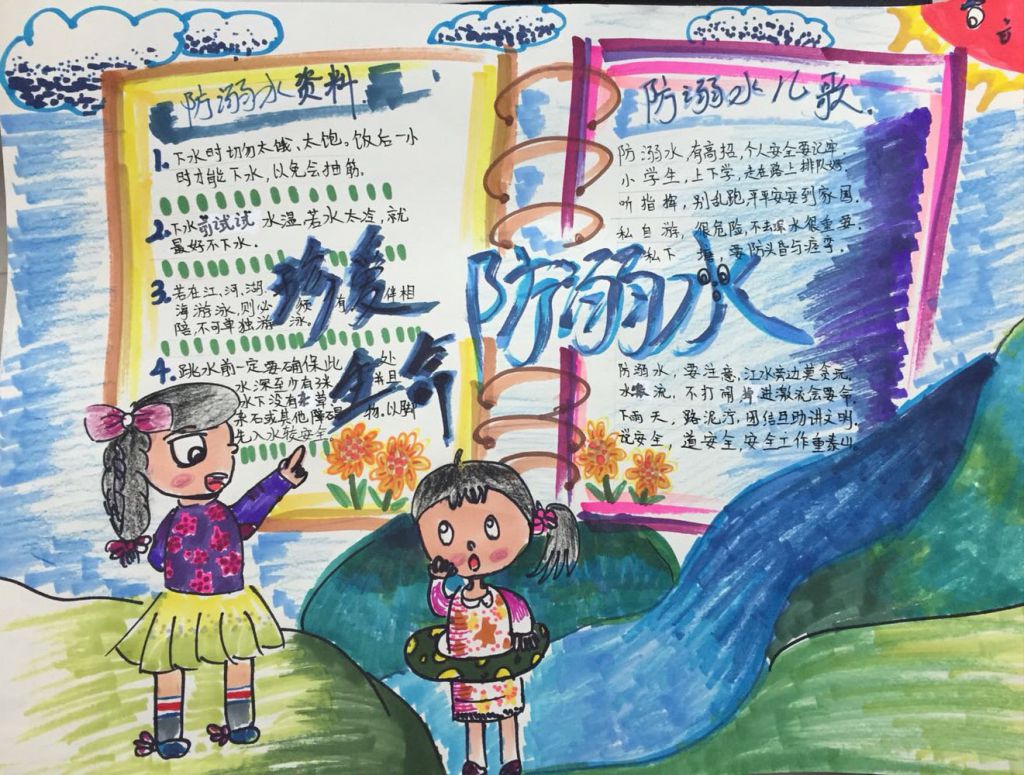 防溺水资料
1. 下水时切勿太饿、太饱。饭后一小
时才能下水，以免会抽筋。
2. 下水前试试水温，若水太冷，就
最好不下水。
3. 若在江、河、湖、
海游泳，则必须有伴相
陪，不可单独游泳。
4. 跳水前一定要确保此处
水深至少有3米，并且
水下没有
石或其他障碍物。以脚
先入水较安全。
珍爱
生命
防溺水
防溺水儿歌
防溺水，有高招，个人安全要记牢
小学生，上下学，走在路上排队好。
听指挥，别乱跑，平平安安到家园。
私自游，很危险，不去深水很重要。
私下塘，要防头昏与
防溺水，要注意，江水旁边莫贪玩，
水流，不打闹，掉进激流会要命。
下雨天，路泥泞，团结互助讲文明。
说安全，道安全，安全工作重泰山。